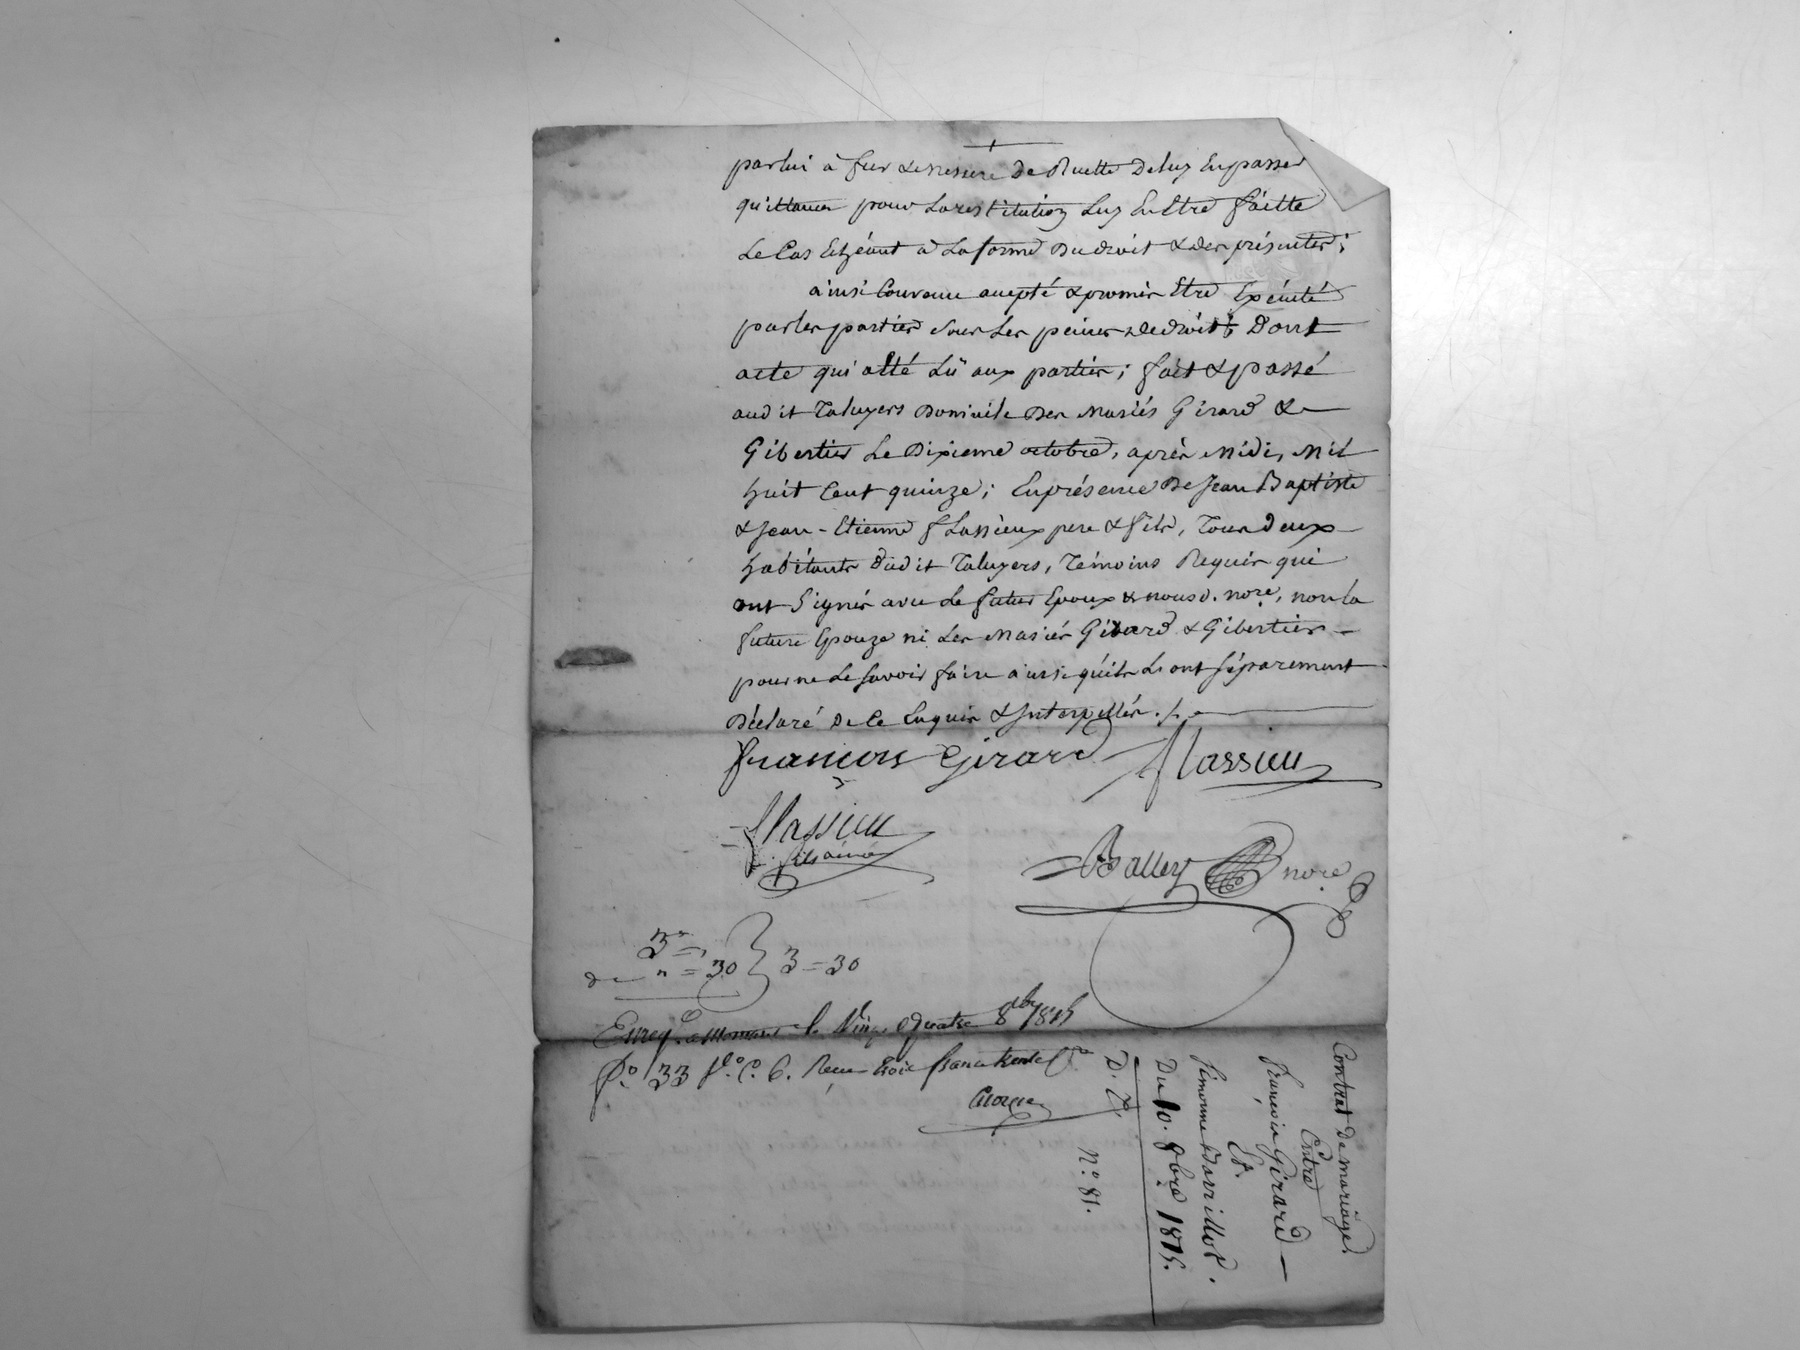 par lui à fur & mesure de Ruette de luy En passer
quittance pour La restitution Luy En Etre faitte
Le Cas Echéant a La forme Du droit & des présentes;
ainsi Convenu accepté & promis Etre Exécuté
par les parties sous Les peines de droit; Dont
acte qui atté Lû aux parties; fait & passé
aud it Taluyers Domicile Des Mariés Girard &
Gibertier Le Dixieme octobre, après Midi, Mil
huit Cent quinze; En présence De Jean Baptiste
& Jean-Etienne flassieux pere & fils, Tous deux
habitants dud it Taluyers, Témoins Requis qui
ont Signés avec Le futur Epoux & nous d. nore, non la
future Epouze ni Les Mariés Girard & Gibertier
pour ne Le Savoir faire ainsi qu'ils L'ont séparement
Déclaré De Ce Enquis & Interpellés ./.
françois Girard flassieu
flassieu
fils ainé
Balley nore
3 =
de " = 30 } 3 = 30
Enreg.é a Mornant le Vingt quatre 8bre 1815
fo. 133 Vo. C. 6. Recu trois francs trente c.
Contrat De mariage.
Entre
François Girard
Et
Simonne Barrillot.
Du 10. 8bre 1815.
D. Z.
No. 81.